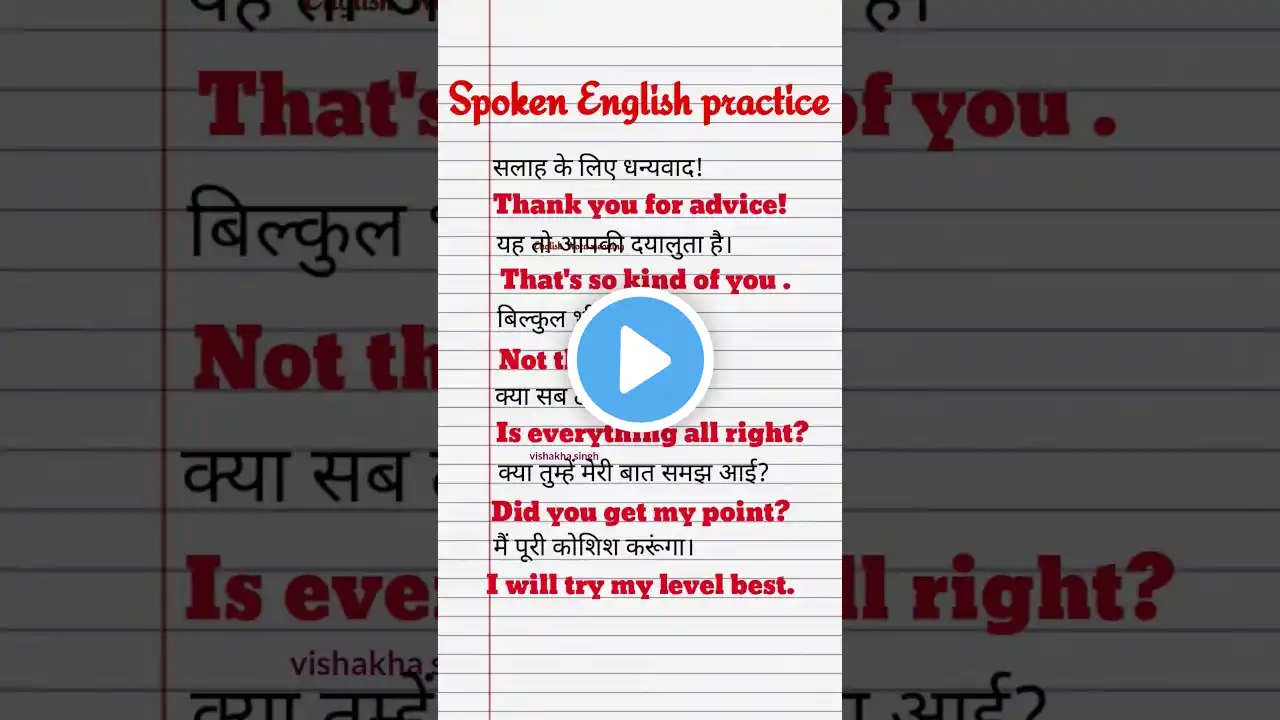 Spoken English practice
सलाह के लिए धन्यवाद!
Thank you for advice!
यह तो आपकी दयालुता है।
English
That's so kind of you .
बिल्कुल
Not
क्या सब
Is everything all right?
vishakha singh
क्या तुम्हें मेरी बात समझ आई?
Did you get my point?
मैं पूरी कोशिश करूंगा।
I will try my level best.